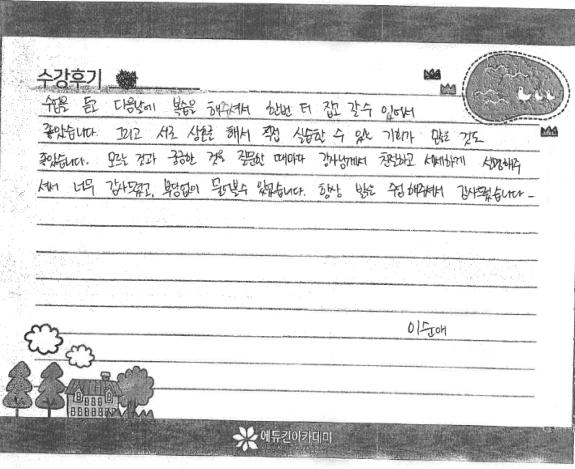 수강후기
수업을 듣고 다음날에 복습을 해주셔서 한번 더 잡고 갈 수 있어서
좋았습니다. 그리고 서로 상호를 해서 직접 실습할 수 있는 기회가 많은 것도
좋았습니다. 모르는 것과 궁금한 것을 질문할 때마다 강사님께서 친절하고 세세하게 설명해주
셔서 너무 감사드리고, 부담없이 물어볼 수 있었습니다. 항상 밝은 수업 해주셔서 감사드렸습니다-
이순애
에듀킨아카데미